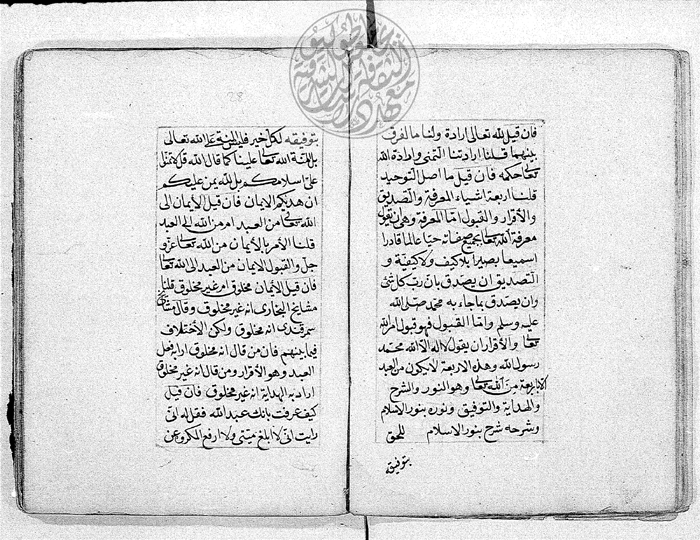 فان قيل لله تعالى ارادة ولنا ما الفرق
بينهما قلنا ارادتنا التمنى وارادة الله
تعالى حكمه فان قيل ما اصل التوحيد
قلنا اربعة اشياء المعرفة والتصديق
والأقرار والقبول امّا المعرفة وهى ان يقول
معرفة الله تعالى بجميع صفاته حيّا عالما قادرا
اسميعا بصيرا بلاكيف ولاكيفيّة و
التصديق ان يصدق بانّ ربّ كل شئ
وان يصدق بماجاء به محمد صلى الله
عليه وسلم وامّا القبول فهو قبول امر الله
تعالى والأقرار ان يقول لااله الاالله محمد
رسول الله وهذه الاربعة لايكون من العبد
الاباربعة من الله تعالى وهو النور والشرح
والهداية والتوفيق ونوره بنور الاسلام
وشرحه شرح بنور الاسلام للحق
بتوفيقه
28
بتوفيقه لكل خير فليس المنة على الله تعالى
بل المنّة الله تعالى علينا كما قال الله قل لاتمنّوا
علىّ اسلامكم بل الله يمن عليكم
ان هديكم الايمان فان قيل الأيمان الى
الله تعالى من العبد امر من الله الى العبد
قلنا الأمر بالأيمان من الله تعالى عزّو
جلّ والقبول الايمان من العبد الى الله تعالى
فان قيل الأيمان مخلوق ام غير مخلوق قلنا
مشايخ البخارى انه غير مخلوق وقال مشايخ
سمرقندى انه مخلوق ولكن الأختلاف
فيما بينهم فان من قال انه مخلوق ارابه فعل
العبد وهو الأقرار ومن قال انه غير مخلوق
اراد به الهداية انه غير مخلوق فان قيل
كيف عرفت بانك عبد الله فقل له انّى
رايت انّى لا ابلغ منيتى ولا ارفع المكروعن